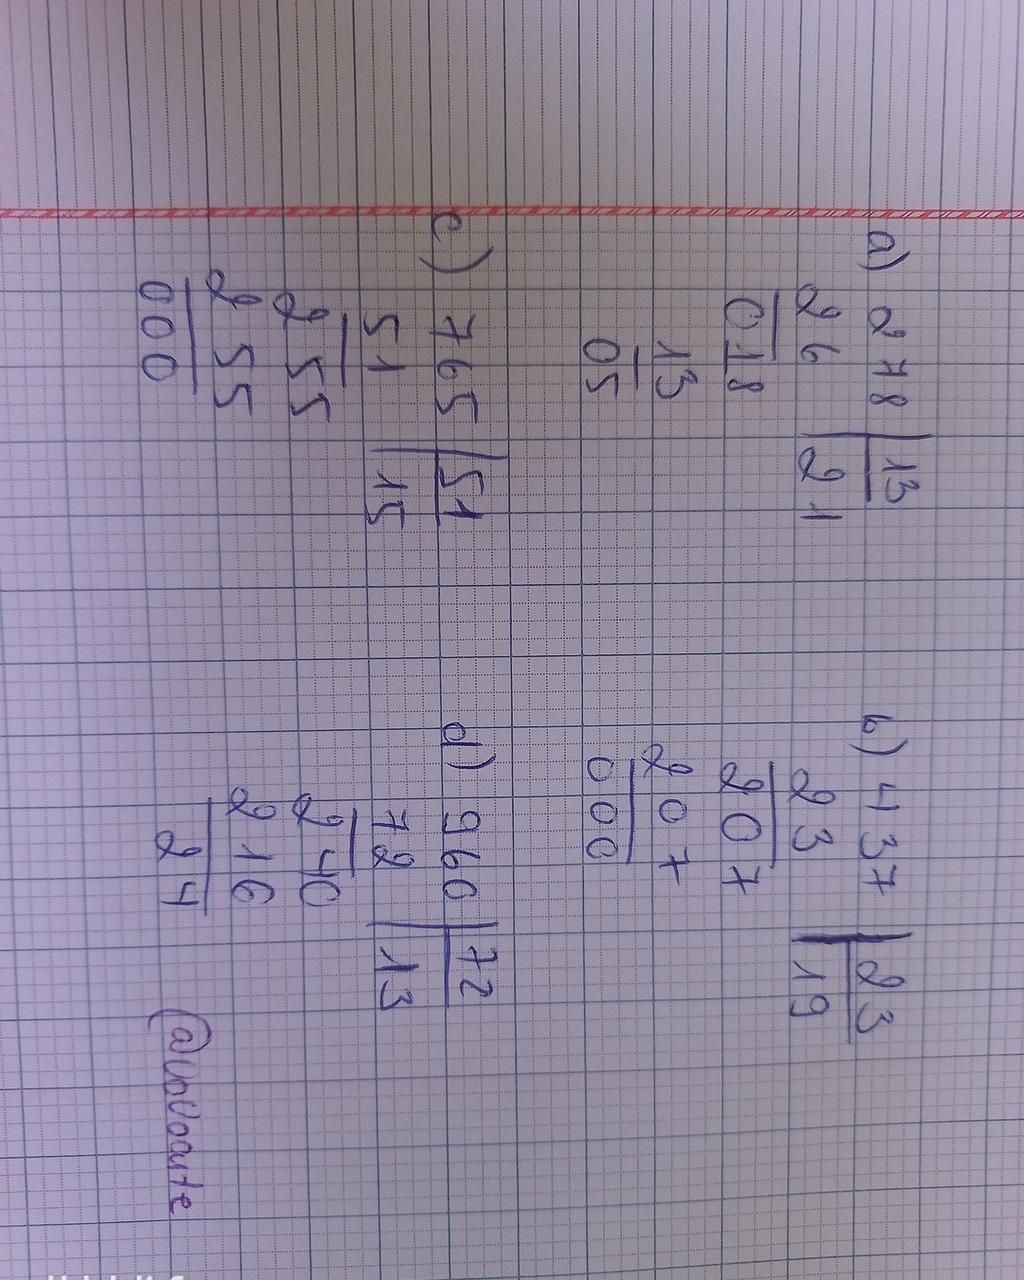 a) 278 | 13
26 | 21
018
13
05
b) 437 | 23
23 | 19
207
207
000
c) 765 | 51
51 | 15
255
255
000
d) 960 | 72
72 | 13
240
216
24